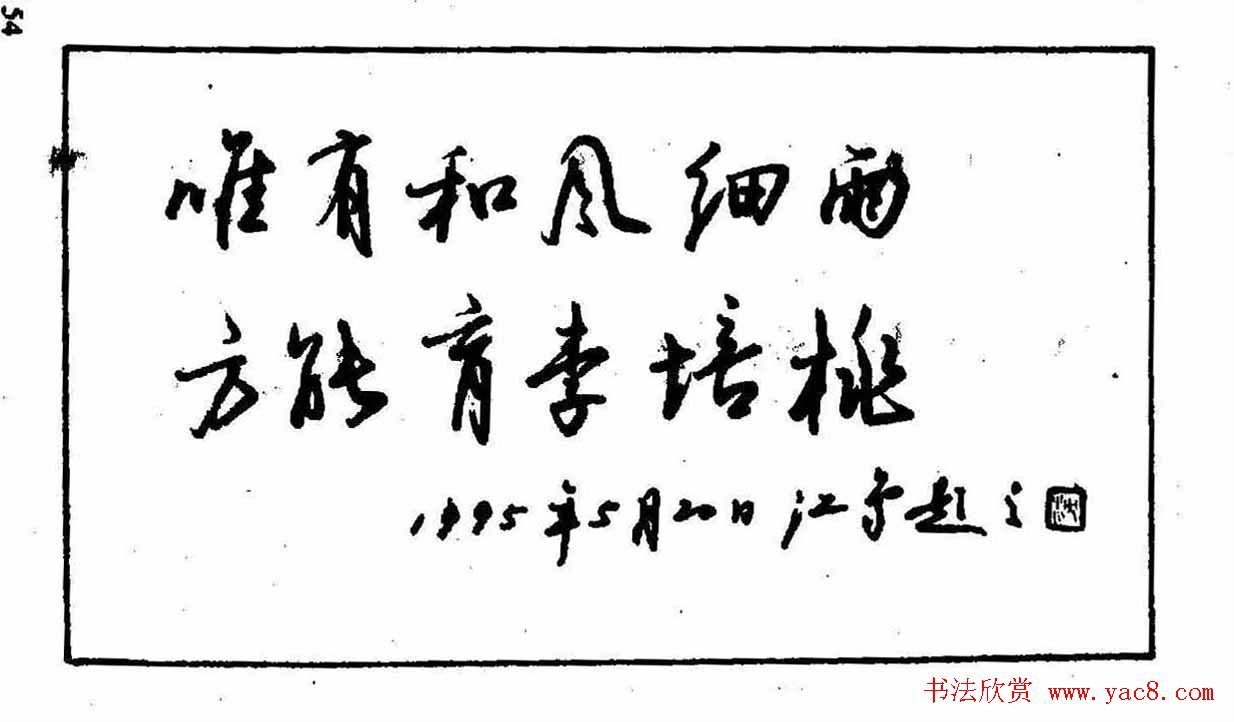 54
唯有和风细雨
方能育李培桃
1995年5月20日 江雪题
书法欣赏 www.yac8.com